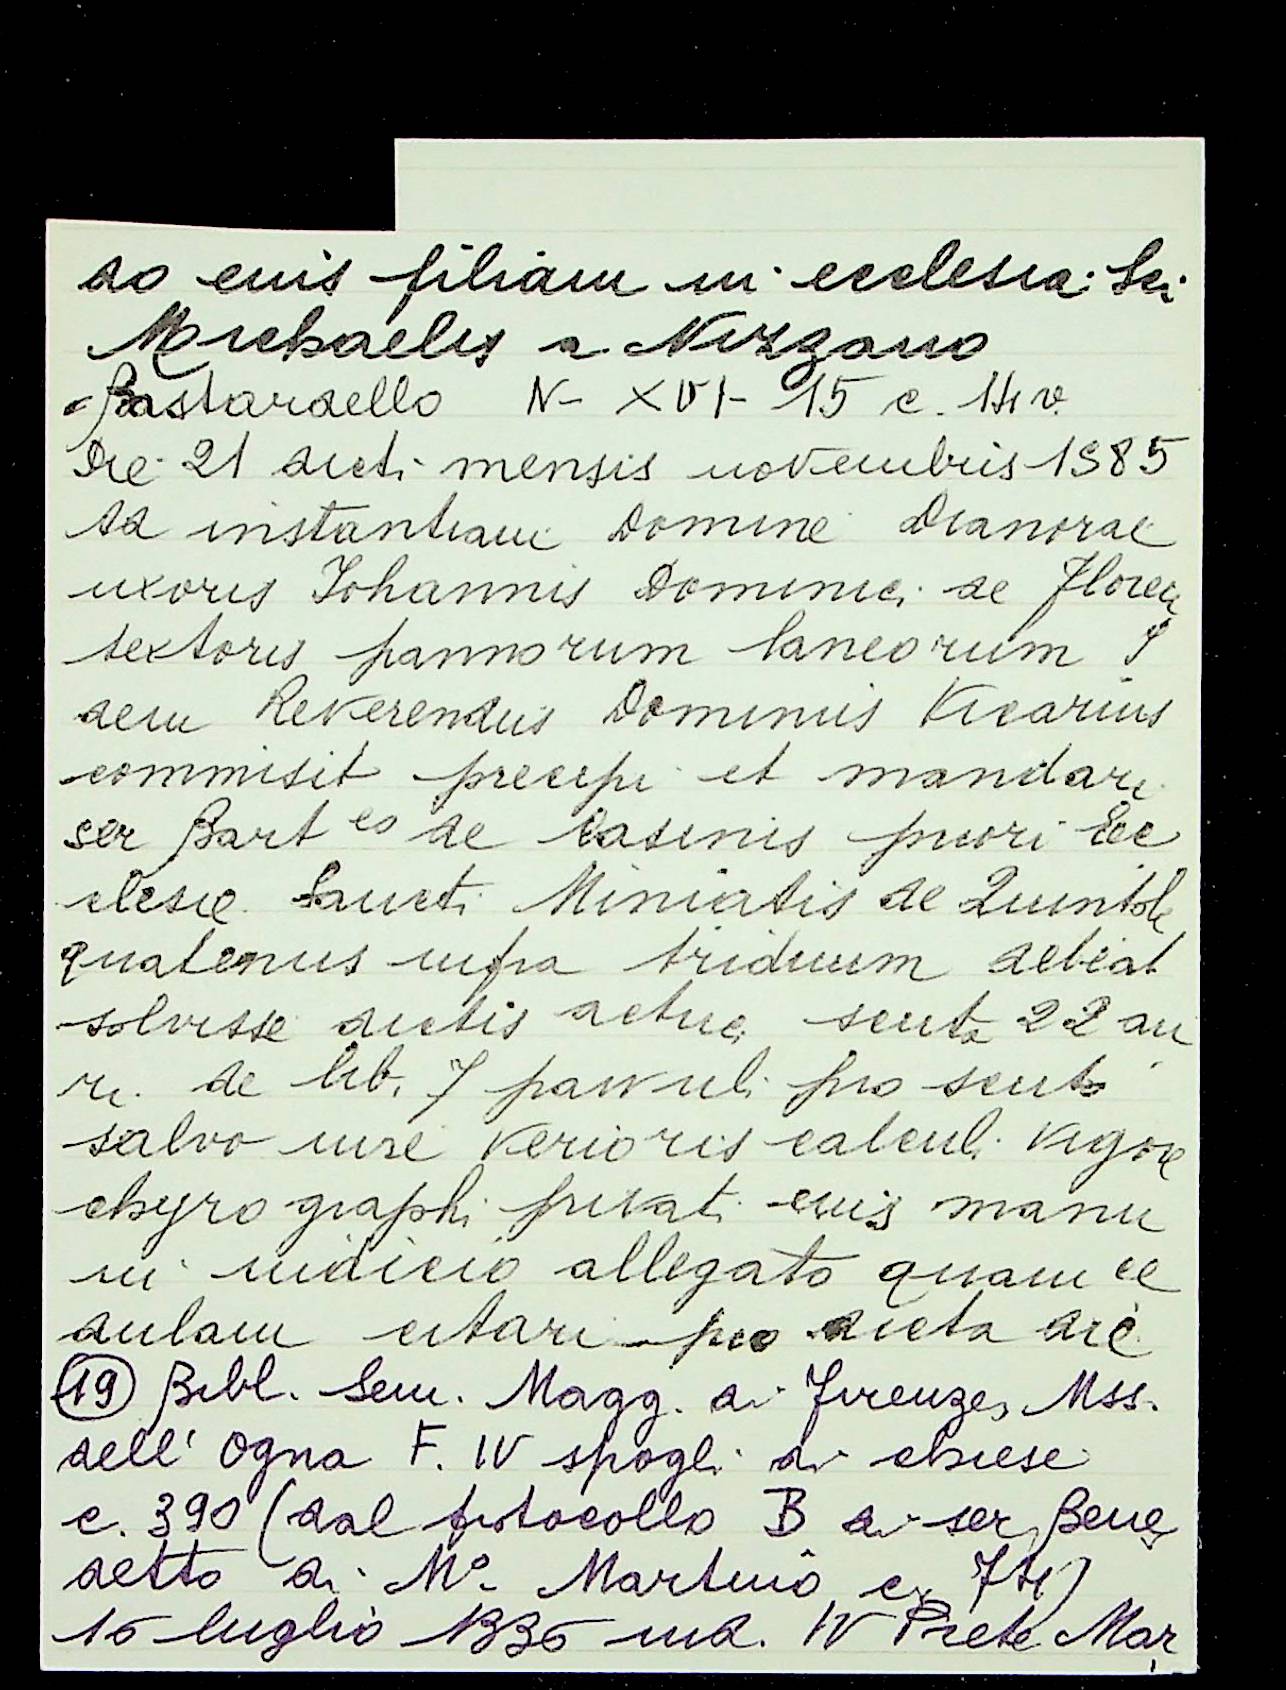 do eius filiam in ecclesia Sci
Michaelis a Nizzano
Bastardello N- XVI- 15 c. v.
Die 21 dicti mensis novembris 1585
Ad instantiam Domine Dianorae
uxoris Johannis Dominici de Floren
textoris pannorum laneorum I
dem Reverendus Dominus Vicarius
commisit precipi et mandari
ser Bart eo de Casinis priori Ec
clesie Sancti Miniatis de Quintole
quatenus infra triduum debeat
solvisse dictis actric scuta 22 au
ri de lib. 7 parvuli pro scuto
salvo iure verioris calculi vigore
chyrographi privati eius manu
in iudicio allegato quam ce
dulam citari pro dicta die
(19) Bibl. Sem. Magg. di Firenze, Mss.
dell' Ogna F. IV spogli di chiese
c. 390 (dal protocollo B di ser Bene
detto di M° Martino c.
16 luglio 1336 ind. IV Prete Mar